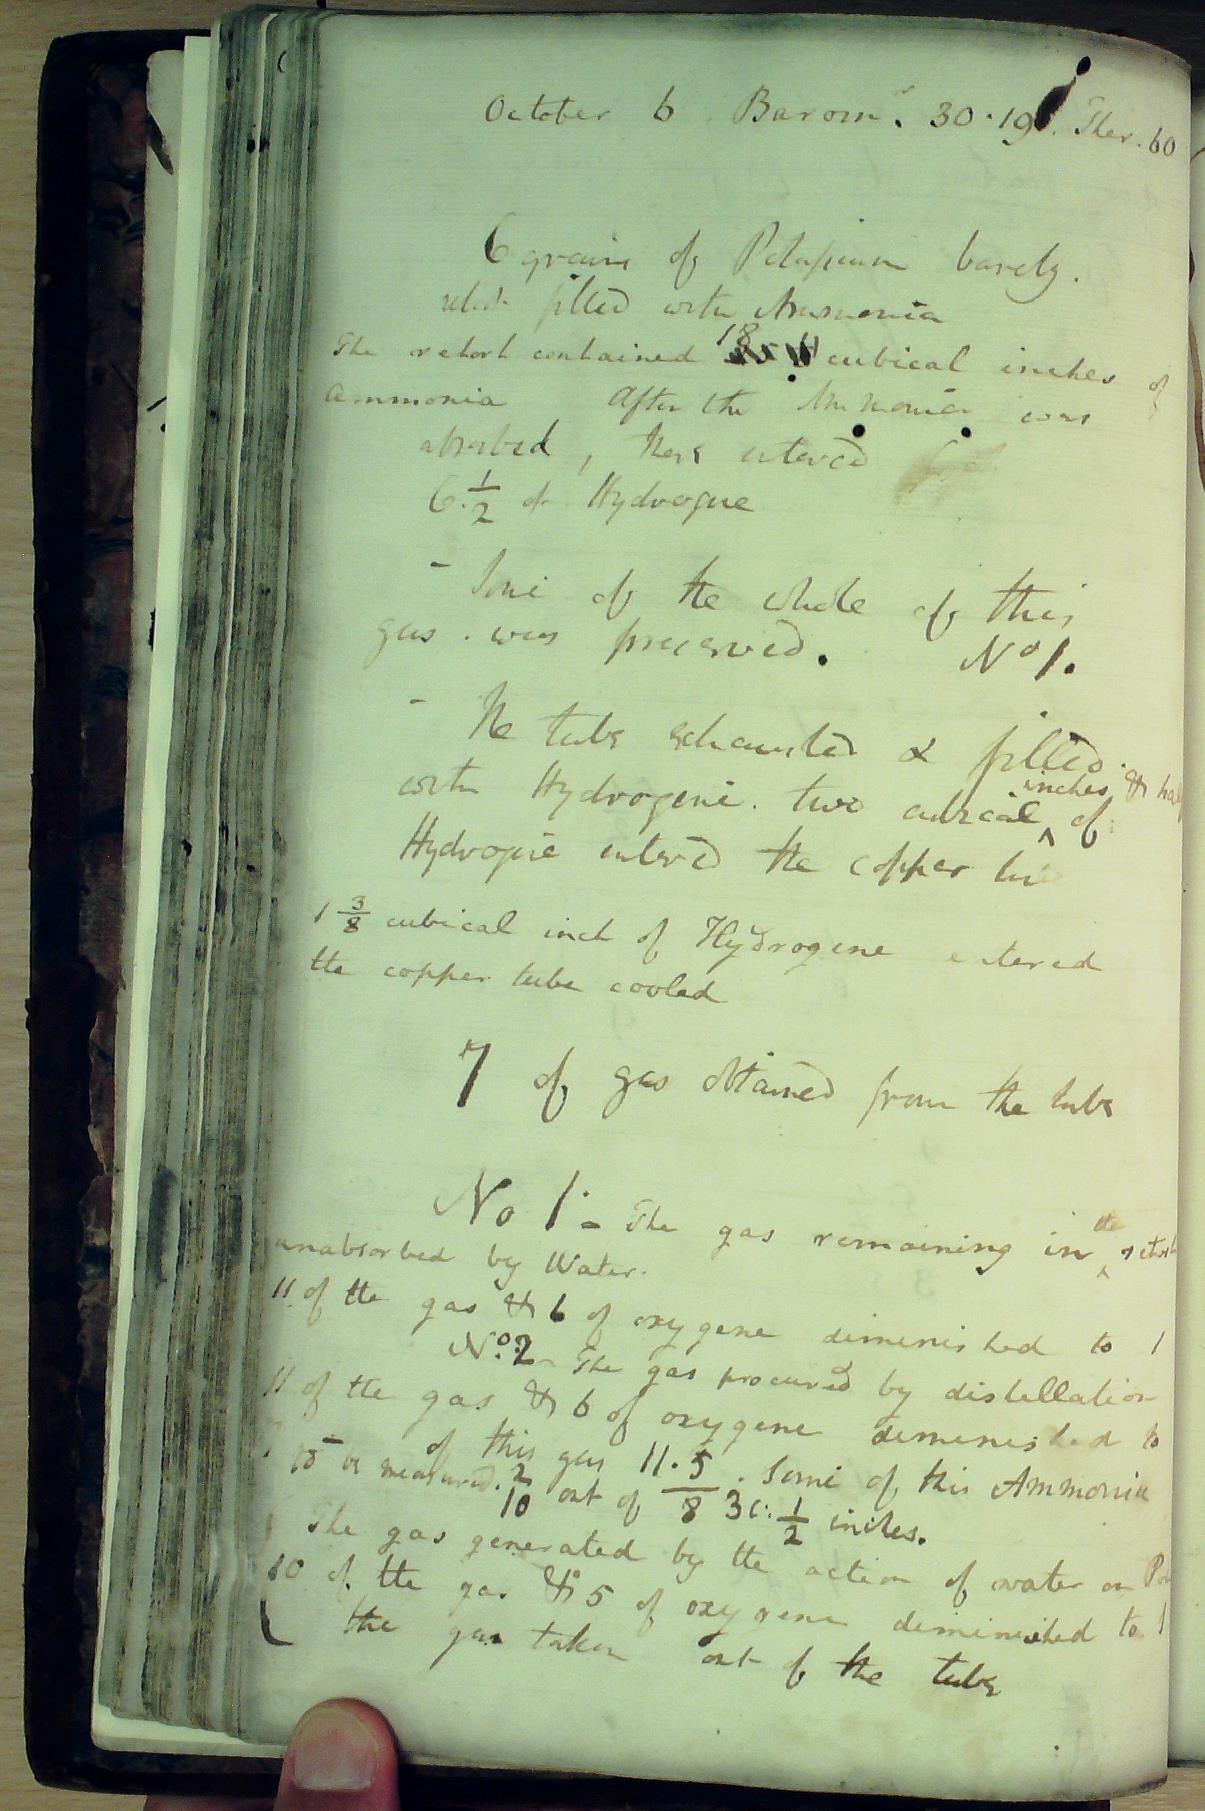 October 6 Barom.r 30.19 Ther. 60
6 grains of Potassium barely.
retort filled with Ammonia
The retort contained 18 cubical inches of
Ammonia After the Ammonia was
absorbed, there entered
6.1/2 of Hydrogene
- Some of the whole of this
gas was preserved. No 1.
- The tube exhausted & filled
with Hydrogene. two cubical inches & half of
Hydrogene entered the copper tube
1 3/8 cubical inch of Hydrogene entered
the copper tube cooled
7 of gas obtained from the tube
No 1 - The gas remaining in the retort
unabsorbed by Water.
11 of the gas & 6 of oxygene diminished to 1
No. 2 - The gas procured by distellation
11 of the gas & 6 of oxygene diminished to
of this gas 11.5/8. Some of this Ammonia
to be measured. 2/10 out of 3 c: 1/2 inches.
The gas generated by the action of water on
10 of the gas & 5 of oxygene diminished to 1
the gas taken out of the tube